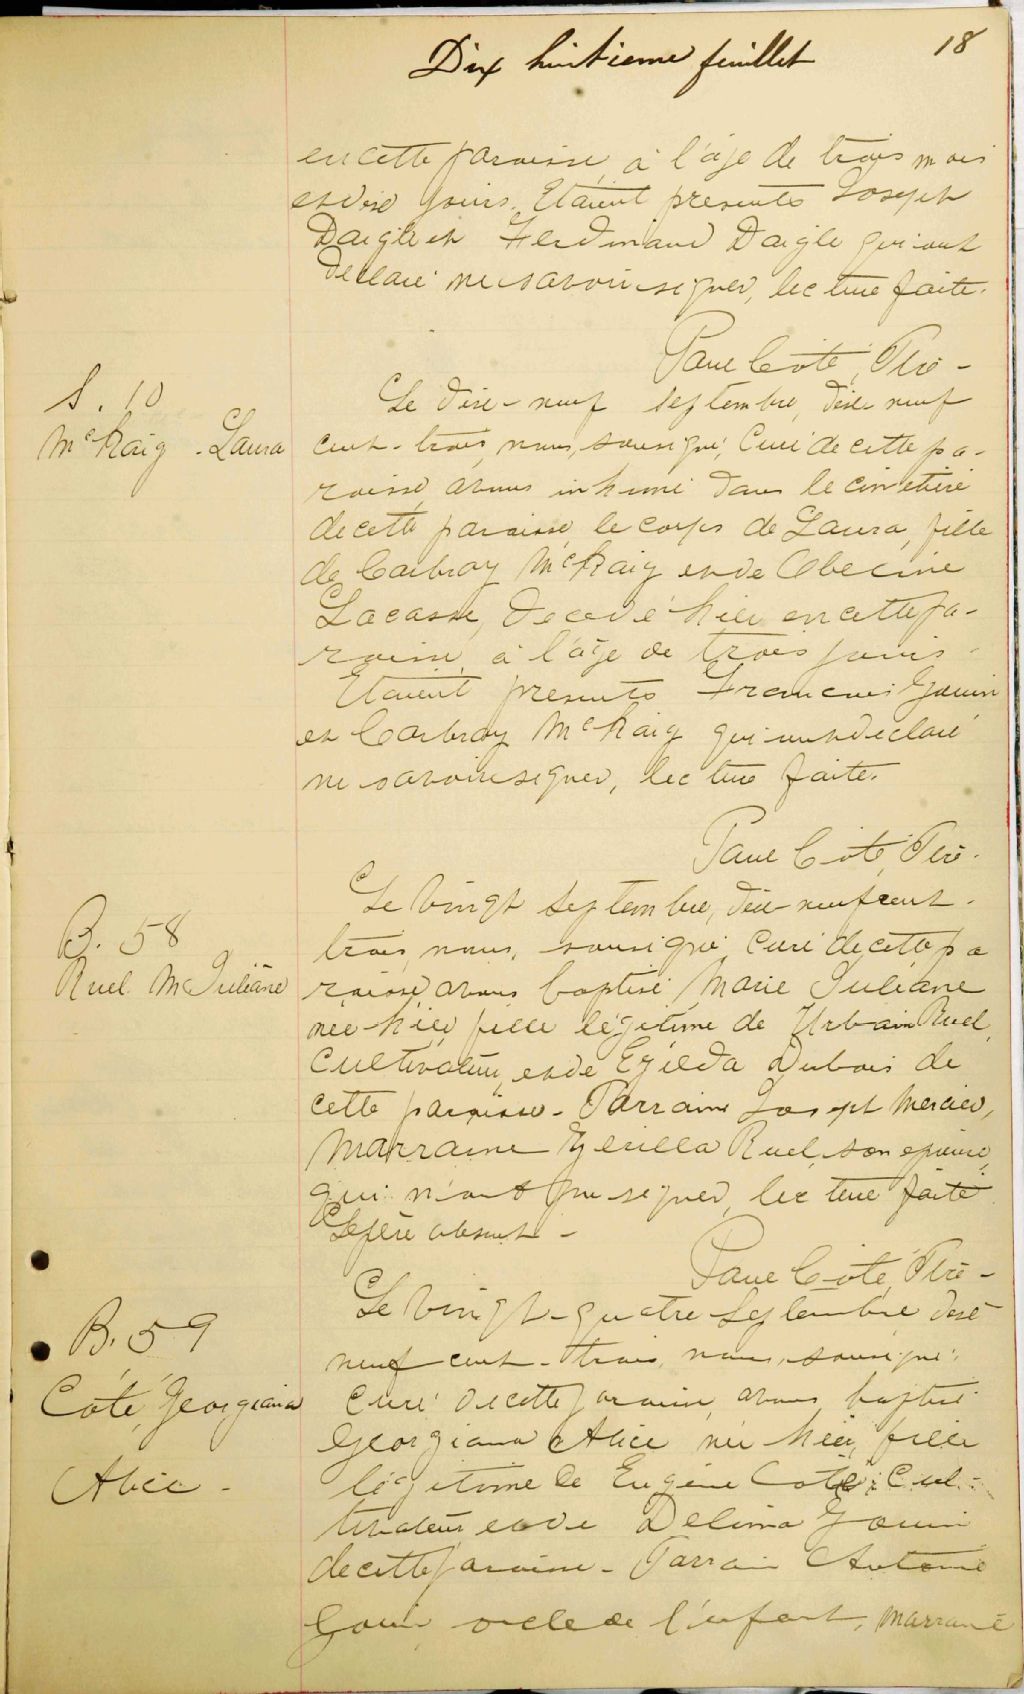 18
Dix huitieme feuillet
en cette paroisse, à l'âge de trois mois
et dix jours. Etaient presents Joseph
Daigle et Ferdinand Daigle qui ont
declaré ne savoir signer, lecture faite.
Paul Coté, Ptre -
S. 10
McKaig - Laura
Le dix-neuf septembre, dix neuf
cent-trois, nous, soussigné, Curé de cette pa-
roisse, avons inhumé dans le cimetière
de cette paroisse, le corps de Laura, fille
de McKaig et de
Lacasse, décédé hier en cette pa-
roisse, à l'âge de trois jours -
Etaient presents Gouin
et McKaig qui ont declaré
ne savoir signer, lecture faite.
Paul Coté, Ptre.
B. 58
Ruel M Juliane
Le vingt septembre, dix-neuf cent-
trois, nous, soussigné, Curé de cette pa
roisse, avons baptisé Marie Juliane
née hier, fille légitime de Urbain Ruel,
Cultivateur, et de Exilda Dubois de
cette paroisse - Parrain Joseph Mercier,
Marraine Ruel, son epouse,
qui n'ont pu signer, lecture faite
Le père absent -
Paul Coté, Ptre -
B. 59
Coté, Georgiana
Alice -
Le vingt-quatre Septembre dix
neuf cent-trois, nous, soussigné,
Curé de cette paroisse, avons baptisé
Georgiana Alice née hier, fille
légitime de Eugène Coté, Cul-
tivateur, et de Delima Gouin
de cette paroisse - Parrain Antoine
Gouin, oncle de l'enfant, marraine